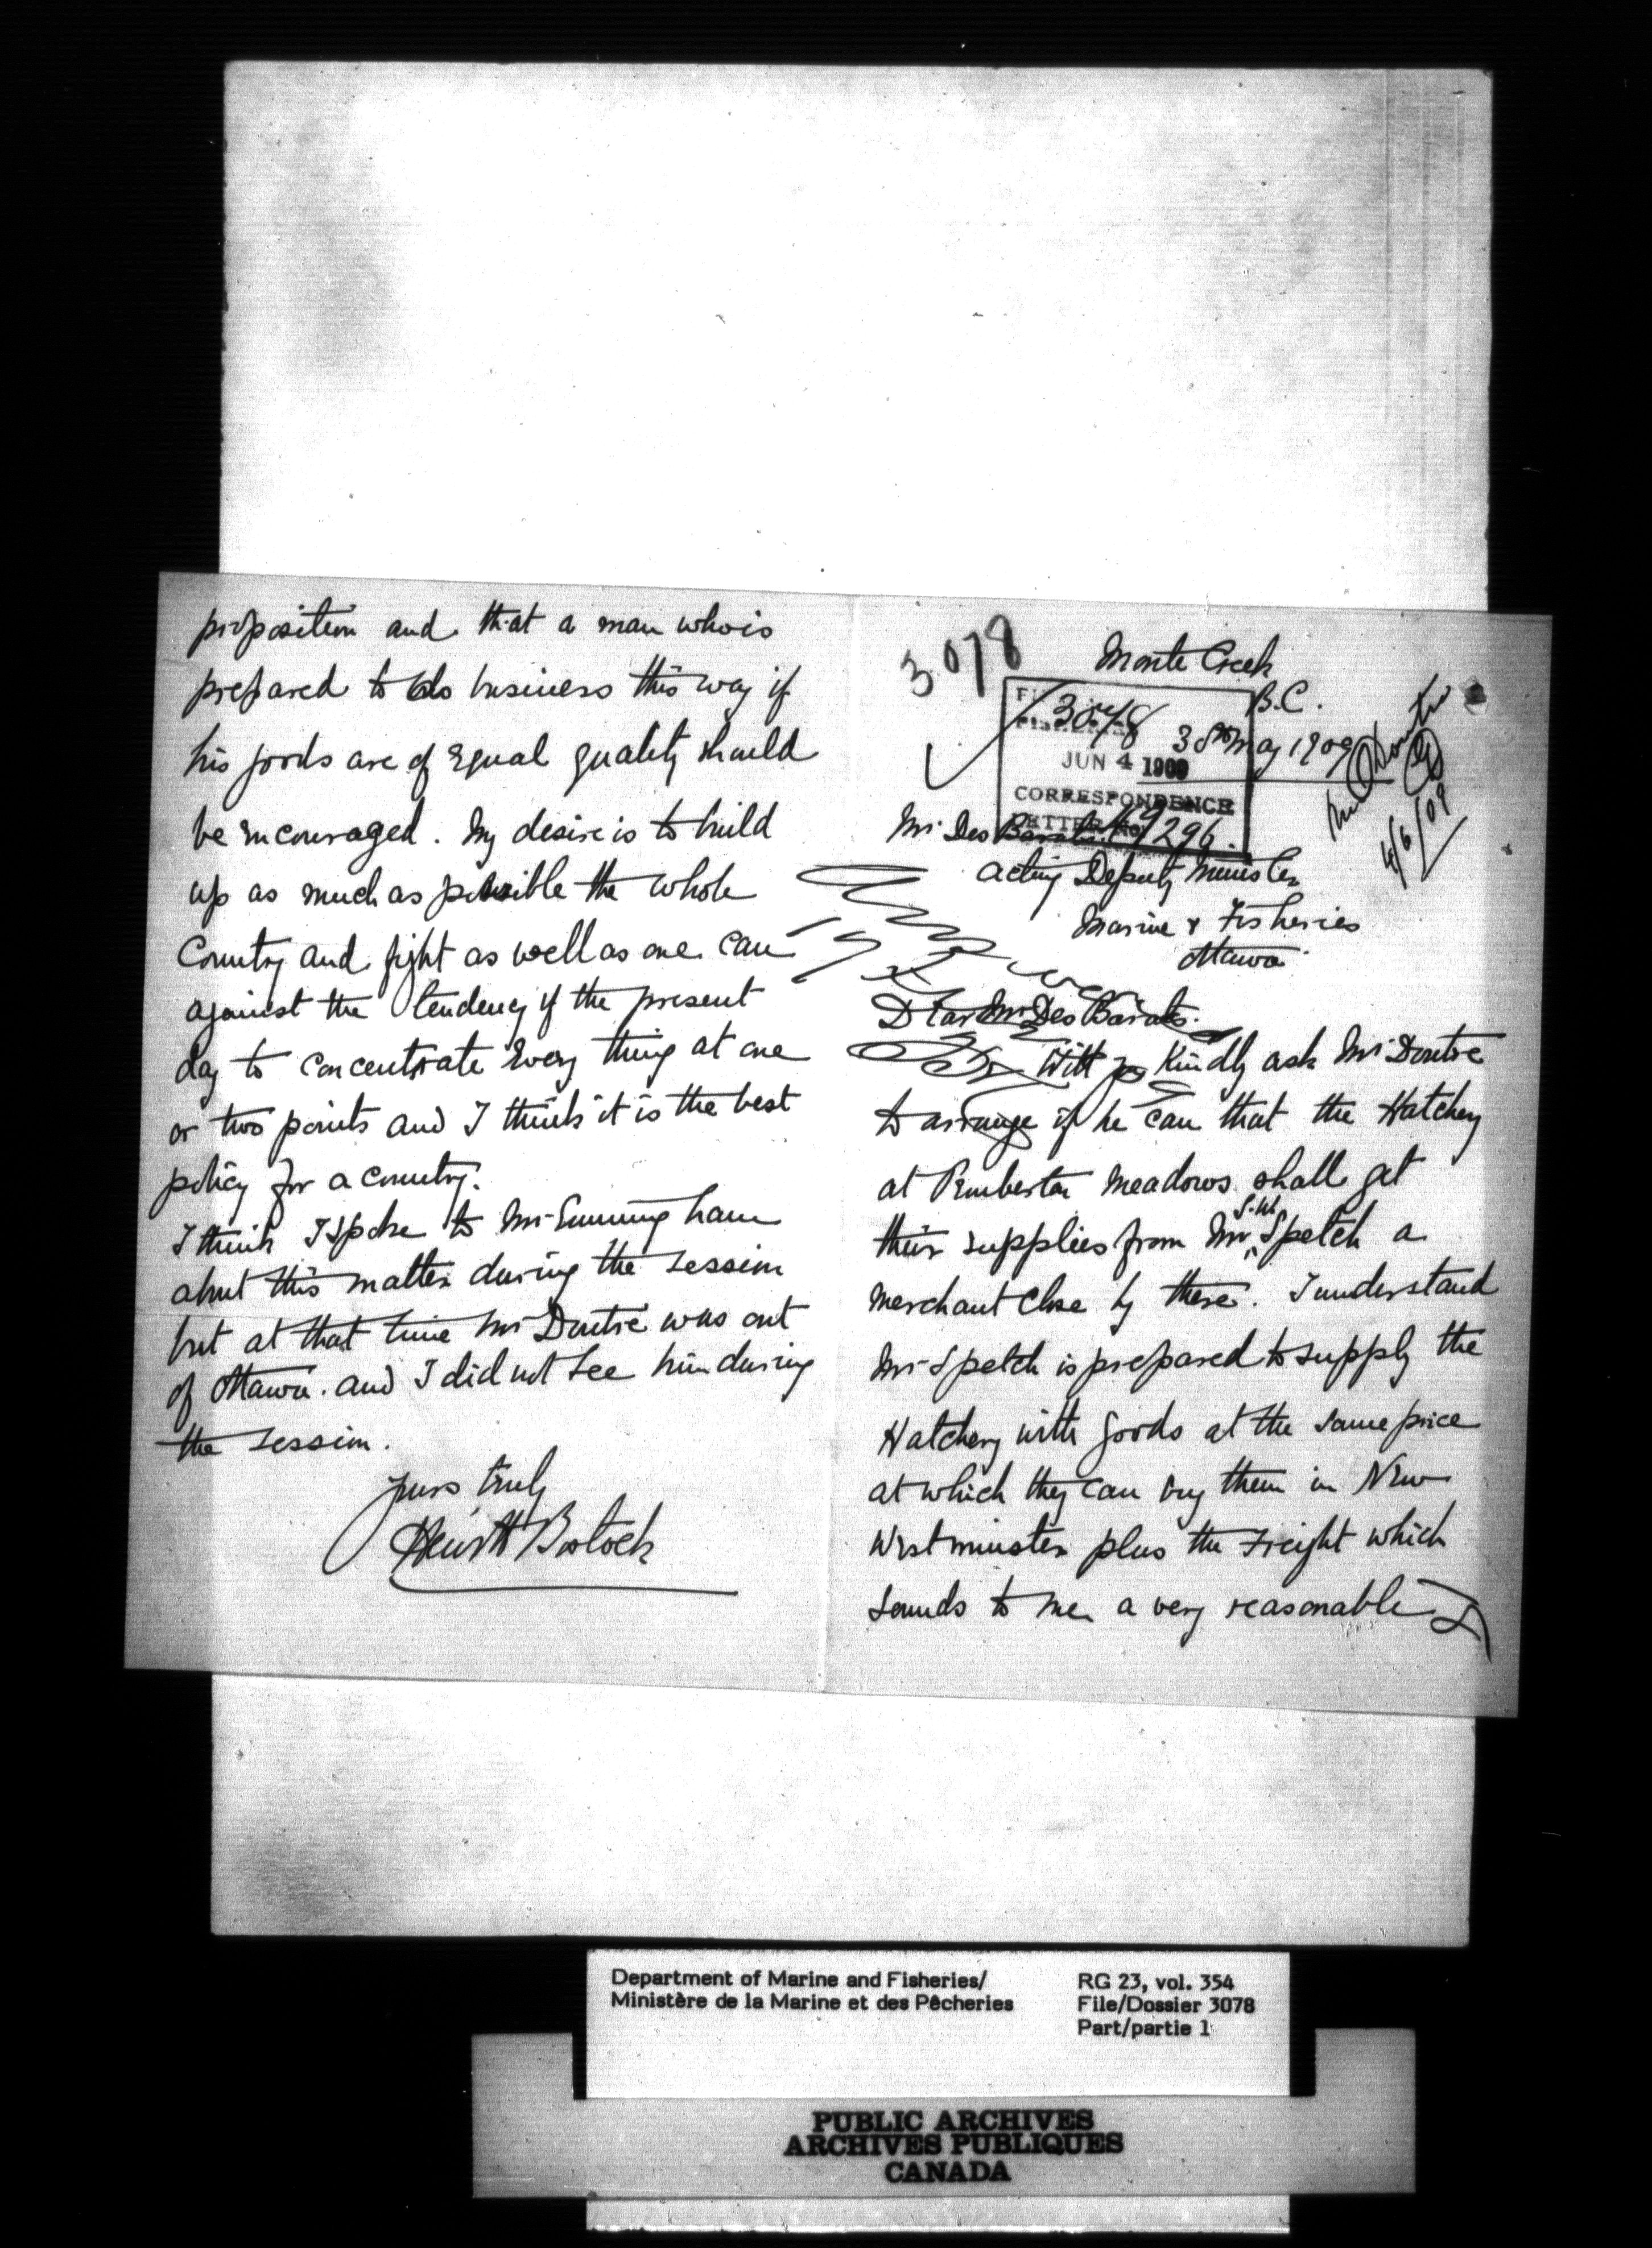 3078
Monte Creek
B.C.
30th May 1909
3078
JUN 4 1909
CORRESPONDENCE
LETTER No.
296.
Mr Doutre
4/6/09
Mr Des Barats
Acting Deputy Minister
Marine & Fisheries
Ottawa
Dear Mr Des Barats.
Will you Kindly ask Mr Doutre
to arrange if he can that the Hatchery
at Pemberton Meadows shall get
their supplies from Mr S.W. Spetch a
merchant close by there. I understand
Mr Spetch is prepared to supply the
Hatchery with goods at the same price
at which they can buy them in New
Westminster plus the freight which
sounds to me a very reasonable
proposition and that a man who is
prepared to do business this way if
his goods are of Equal quality should
be encouraged. My desire is to build
up as much as possible the whole
Country and fight as well as one can
against the tendency of the present
day to concentrate Every thing at one
or two points and I think it is the best
policy for a country.
I think I spoke to Mr Cunningham
about this matter during the session
but at that time Mr Doutre was out
of Ottawa. and I did not see him during
the session.
yours truly
Hewitt Bostock
Department of Marine and Fisheries/
Ministère de la Marine et des Pêcheries
RG 23, vol. 354
File/Dossier 3078
Part/partie 1
PUBLIC ARCHIVES
ARCHIVES PUBLIQUES
CANADA